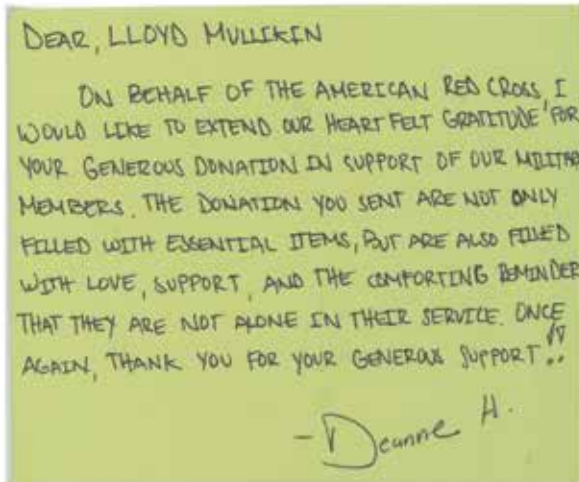 DEAR, LLOYD MULLIKIN
ON BEHALF OF THE AMERICAN RED CROSS, I
WOULD LIKE TO EXTEND OUR HEART FELT GRATITUDE FOR
YOUR GENEROUS DONATION IN SUPPORT OF OUR MILITAR
MEMBERS. THE DONATION YOU SENT ARE NOT ONLY
FILLED WITH ESSENTIAL ITEMS, BUT ARE ALSO FILLED
WITH LOVE, SUPPORT, AND THE COMFORTING REMINDER
THAT THEY ARE NOT ALONE IN THEIR SERVICE. ONCE
AGAIN, THANK YOU FOR YOUR GENEROUS SUPPORT!!
- Deanne H.